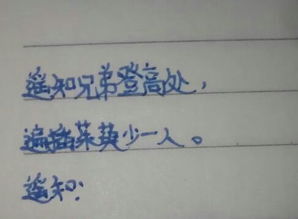 遥知兄弟登高处，
遍插茱萸少一人。
遥知：